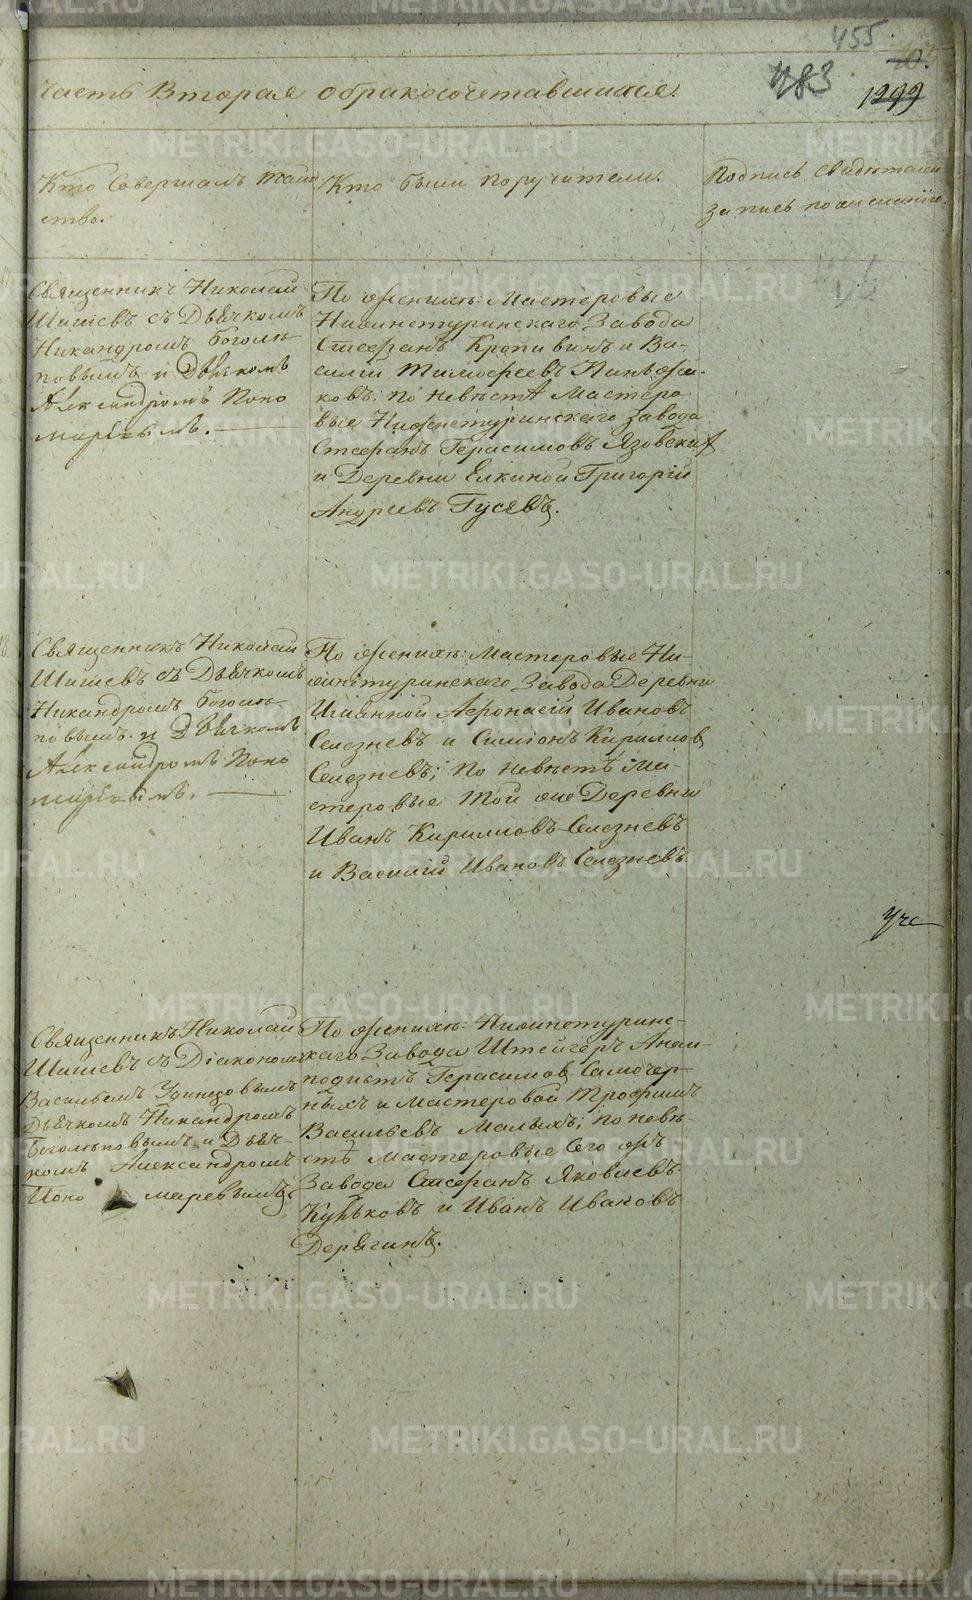 455
10.
483
1299
Часть Вторая о бракосочетавшихся.
Кто Совершалъ таин
ство.
Кто были поручители.
Подпись Свидѣтелей
запись по желанію.
Священникъ Николай
Шишевъ съ Дьячкомъ
Никандромъ Боголѣ
повымъ и Дьячкомъ
Александромъ Поно
маревымъ.
По женихѣ: Мастеровые
Нижнетуринскаго Завода
Стефанъ Кропивинъ и Ва-
силій Тимофеевъ
по невѣстѣ Мастеро
вые Нижнетуринскаго завода
Стефанъ Герасимовъ Язовскихъ
и Деревни Елкиной Григорій
Андреевъ Гусевъ.
Священникъ Николай
Шишевъ съ Дьячкомъ
Никандромъ Боголѣ-
повымъ и Дьячкомъ
Александромъ Поно
маревымъ.
По женихѣ: Мастеровые Ни-
жнетуринскаго Завода Деревни
Имянной Афонасій Ивановъ
Селезневъ и Симіонъ Кириловъ
Селезневъ; по невѣстѣ Ма-
стеровые той же Деревни
Иванъ Кириловъ Селезневъ
и Василій Ивановъ Селезневъ
Священникъ Николай
Шишевъ съ Діакономъ
Васильемъ Удинцовымъ
Дьячкомъ Никандромъ
Боголѣповымъ и Дьяч-
комъ Александромъ
Поно маревымъ.
По женихѣ: Нижнетурин-
скаго Завода Штейгеръ Анем-
подистъ Герасимовъ Самочер-
ныхъ и Мастеровой Трофимъ
Васильевъ Малыхъ; по невѣ-
стѣ Мастеровые Сего жъ
Завода Стефанъ Яковлевъ
Куньковъ и Иванъ Ивановъ
Дерягинъ.
METRIKI.GASO-URAL.RU